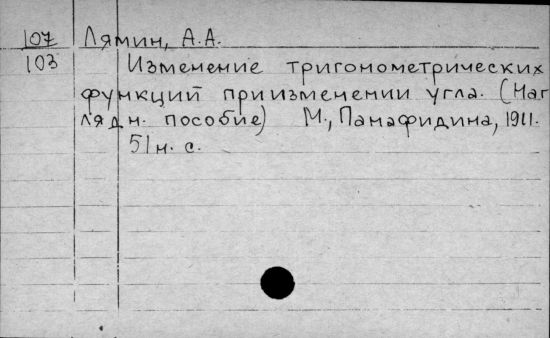 107 Лямин, А.А.
103 Изменение тригонометрических
функций при изменении угла. (Наг
лядн. пособие) М., Панафидина, 1911.
51 н. с.